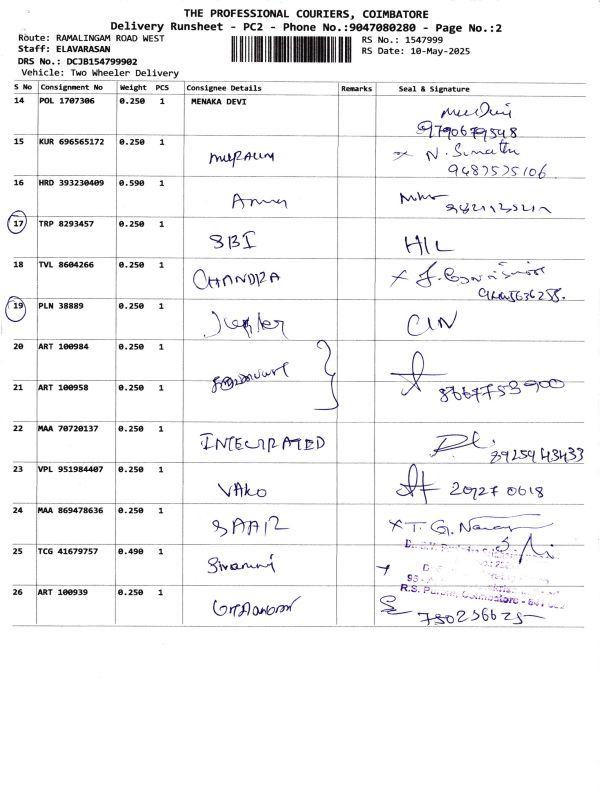 THE PROFESSIONAL COURIERS, COIMBATORE
Delivery Runsheet - PC2 - Phone No.:9047080280 - Page No.:2
Route: RAMALINGAM ROAD WEST RS No.: 1547999
Staff: ELAVARASAN RS Date: 10-May-2025
DRS No.: DCJB154799902
Vehicle: Two Wheeler Delivery
S No Consignment No Weight PCS Consignee Details Remarks Seal & Signature
14 POL 1707306 0.250 1 MENAKA DEVI
9790679548
15 KUR 696565172 0.250 1 N. Sumathi
9487575106
16 HRD 393230409 0.590 1
17 TRP 8293457 0.250 1 SBI H/L
18 TVL 8604266 0.250 1 CHANDRA
19 PLN 38889 0.250 1 CIN
20 ART 100984 0.250 1
21 ART 100958 0.250 1 8667753900
22 MAA 70720137 0.250 1 INTEGRATED
8925943433
23 VPL 951984407 0.250 1 VAKO 20727 0618
24 MAA 869478636 0.250 1 T. G.
25 TCG 41679757 0.490 1
R.S. Puram, Coimbatore - 641
26 ART 100939 0.250 1